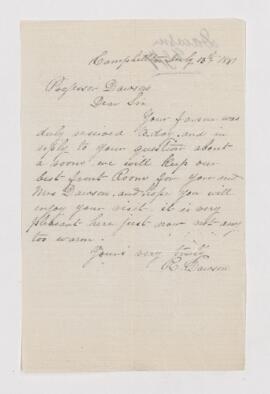 Campbellton July 13th 1881
Professor Dawson
Dear Sir
Your favour was
duly received today, and in
reply to your question about
a room, we will keep our
best front Room for you and
Mrs Dawson, and hope you will
enjoy your visit, it is very
pleasant here just now not any
too warm.
Yours very truly
Dawson